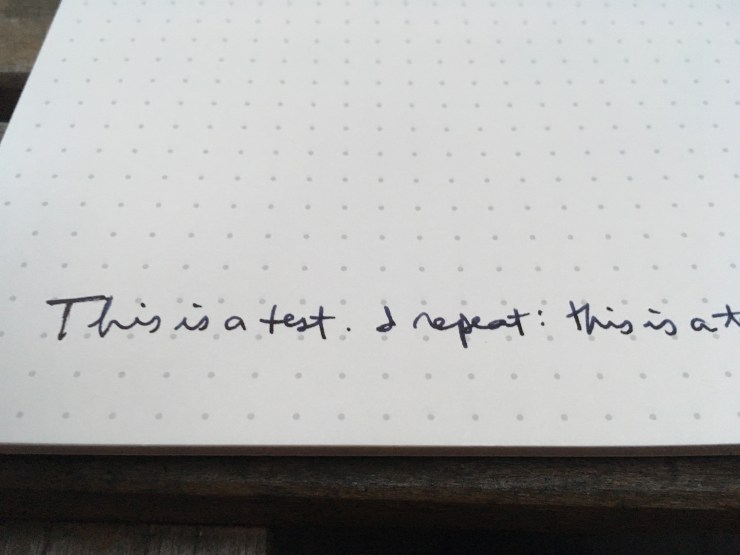 This is a test. I repeat: this is a t